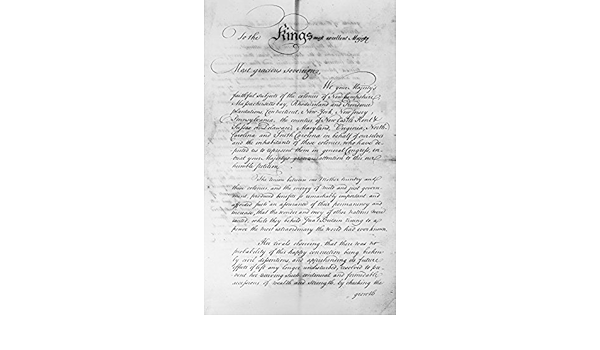 To the Kings most excellent Majesty
Most gracious sovereign,
We your Majesty's
faithful subjects of the colonies of New hampshire,
Massachusetts bay, Rhode island and Providence
plantations, Connecticut, New York, New Jersey,
Pennsylvania, the counties of New Castle Kent &
Sussex on Delaware, Maryland, Virginia, North
Carolina and South Carolina in behalf of ourselves
and the inhabitants of these colonies, who have de-
puted us to represent them in general Congress, en-
treat your Majestys gracious attention to this our
humble petition.
The union between our Mother Country and
these colonies, and the energy of mild and just govern-
ment, produced benefits so remarkably important, and
afforded such an assurance of their permanency and
increase, that the wonder and envy of other Nations were
excited, while they beheld Great Britain riseing to a
power the most extraordinary the world had ever known.
Her rivals observing, that there was no
probability of this happy connection being broken
by civil dissentions, and apprehending its future
effects if left any longer undisturbed, resolved to pre-
vent her receiving such continual and formidable
accessions of wealth and strength, by checking the
growth